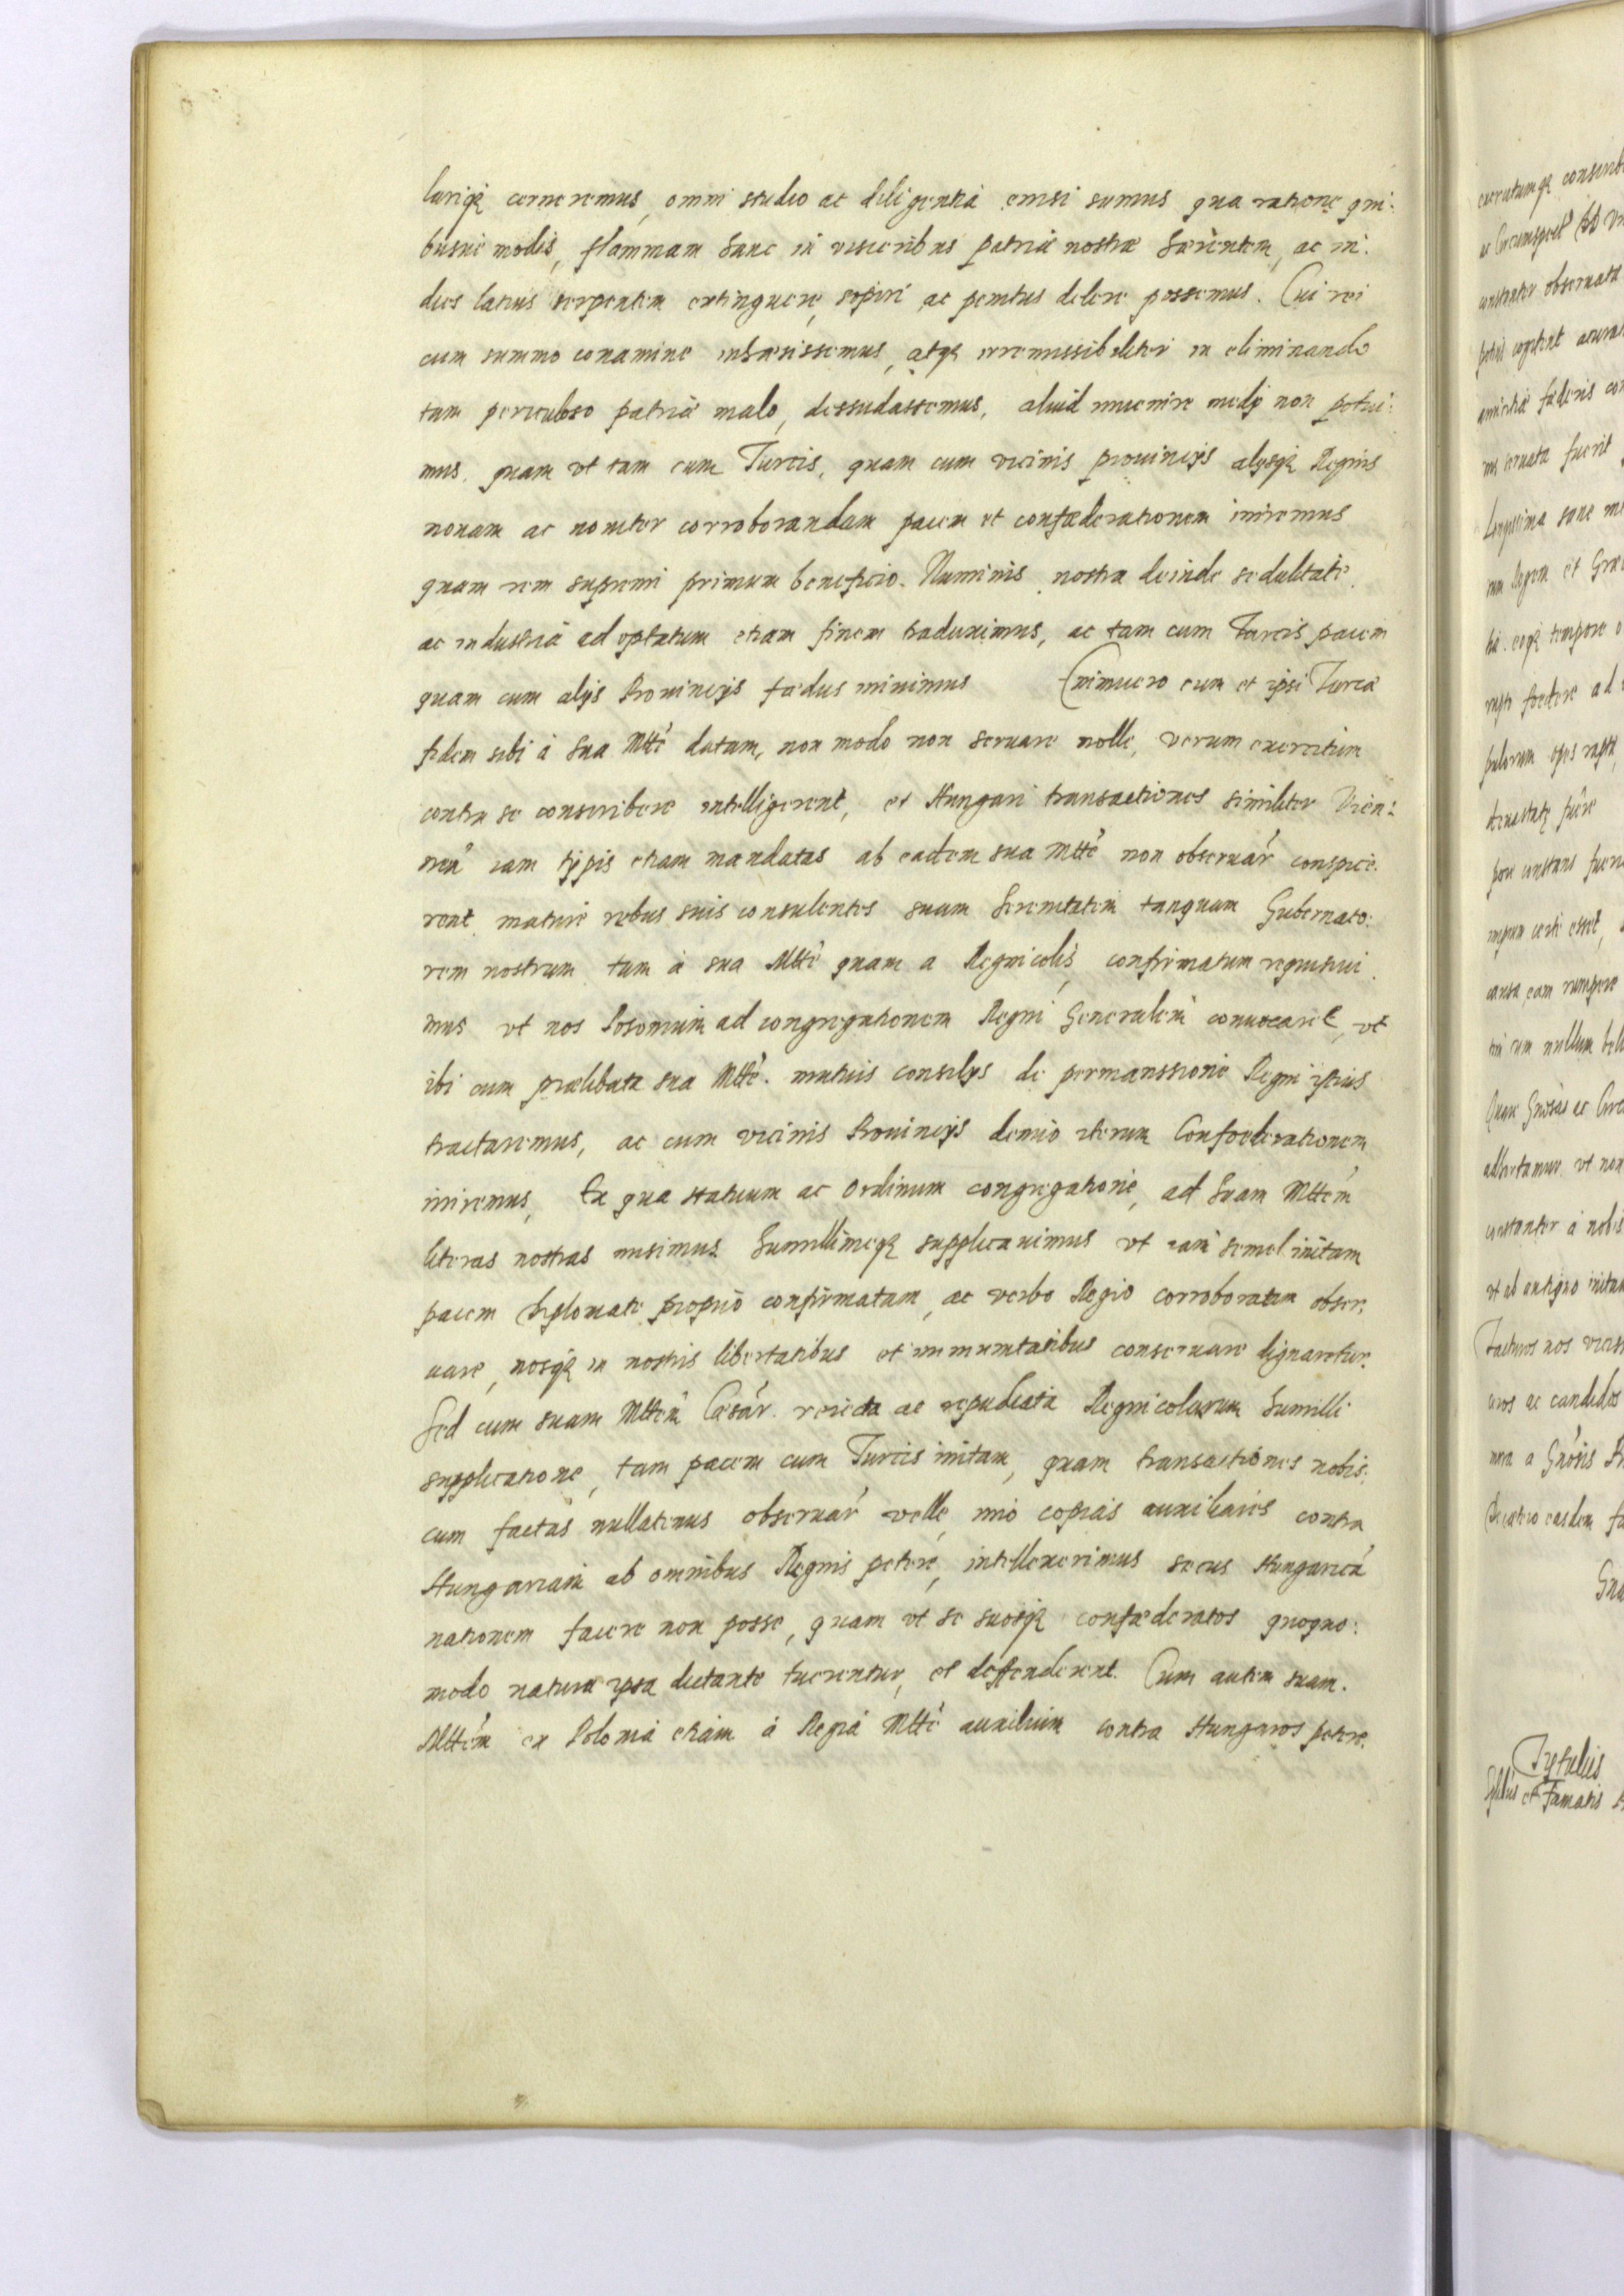 larique cerneremus, omni studio ac diligentia enisi sumus qua ratione qui-
busue modis, flammam hanc in visceribus patriæ nostræ sæuientem, ac in
dies latius serpentem extinguere, sopiri ac penitus delere possemus. Cui rei
cum summo conamine inhæsissemus, atque irremissibiliter in eliminando
tam periculoso patriæ malo, dessudassemus, aliud inuenire medij non potui:
mus, quam vt tam cum Turcis, quam cum vicinis prouincijs alijsque Regnis
nouam ac nouiter corroborandam pacem et confœderationem iniremus
quam rem supremi primum beneficio Numinis nostra deinde sedulitate
ac industriâ ad optatum etiam finem traduximus, ac tam cum Turcis pacem
quam cum alijs Prouincijs fœdus iniuimus Enimuero cum et ipsi Turcæ
fidem sibi à Sua Mtte datam, non modo non seruare nolle, verum exercitum
contra se conscribere intelligerent, et Hungari transactiones similiter Vien:
næ iam typis etiam mandatas ab eadem sua Mtte non obseruar conspice.
rent mature rebus suis consulentes suam Serenitatem tanquam Gubernato:
rem nostrum tam à sua Mtte quam a Regnicolis, confirmatum requisiui
mus vt nos Posonium ad congregationem Regni Generalem conuocaret, vt
ibi cum prælibata sua Mtte. mutuis consilijs de permanssione Regni istius
tractaremus, ac cum vicinis Prouincijs denuo iterum Confœderationem
iniremus, Ex qua statuum ac Ordinum congregatione, ad Suam Mttem
literas nostras misimus humillimeque supplicauimus vt iam semel initam
pacem diplomate proprio confirmatam, ac verbo Regio corroboratam obser,
uare, nosque in nostris libertatibus et immunitatibus conseruare dignaretur.
Sed cum suam Mttem Cæsar. reiecta ac repudiata Regnicolarum humilli
supplicatione, tam pacem cum Turcis initam, quam transactiones nobis.
cum factas nullatenus obseruar velle, imò copias auxiliares contra
Hungariam ab omnibus Regnis petere, intellexerimus secus Hungarica
nationem facere non posse, quam vt se suosque confœderatos quoquo:
modo natura ipsa dictante tuerentur, et deffenderent. Cum autem suam.
Mttem ex Polonia etiam à Regiâ Mtte auxilium contra Hungaros petere.